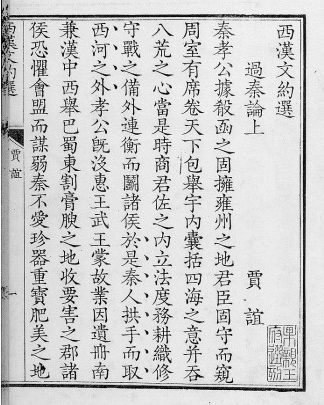 西漢文約選
過秦論上
賈誼
秦孝公據殽函之固擁雍州之地君臣固守而窺
周室有席卷天下包舉宇内囊括四海之意并吞
八荒之心當是時商君佐之内立法度務耕織修
守戰之備外連衡而鬭諸侯於是秦人拱手而取
西河之外孝公旣沒惠王武王蒙故業因遺冊南
兼漢中西舉巴蜀東割膏腴之地收要害之郡諸
侯恐懼會盟而謀弱秦不愛珍器重寶肥美之地
西漢文約選
賈誼
一